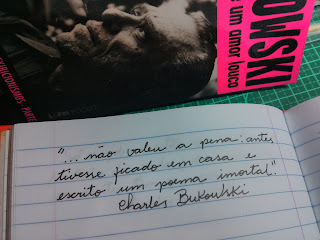 OWSKI
e um amor louco
L&PM POCKET
EXIBICIONISMOS
"... não valeu a pena: antes
tivesse ficado em casa e
escrito um poema imortal."
Charles Bukowski